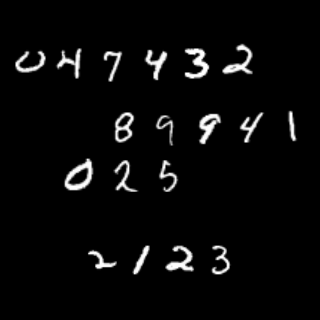 047432
89941
025
2123